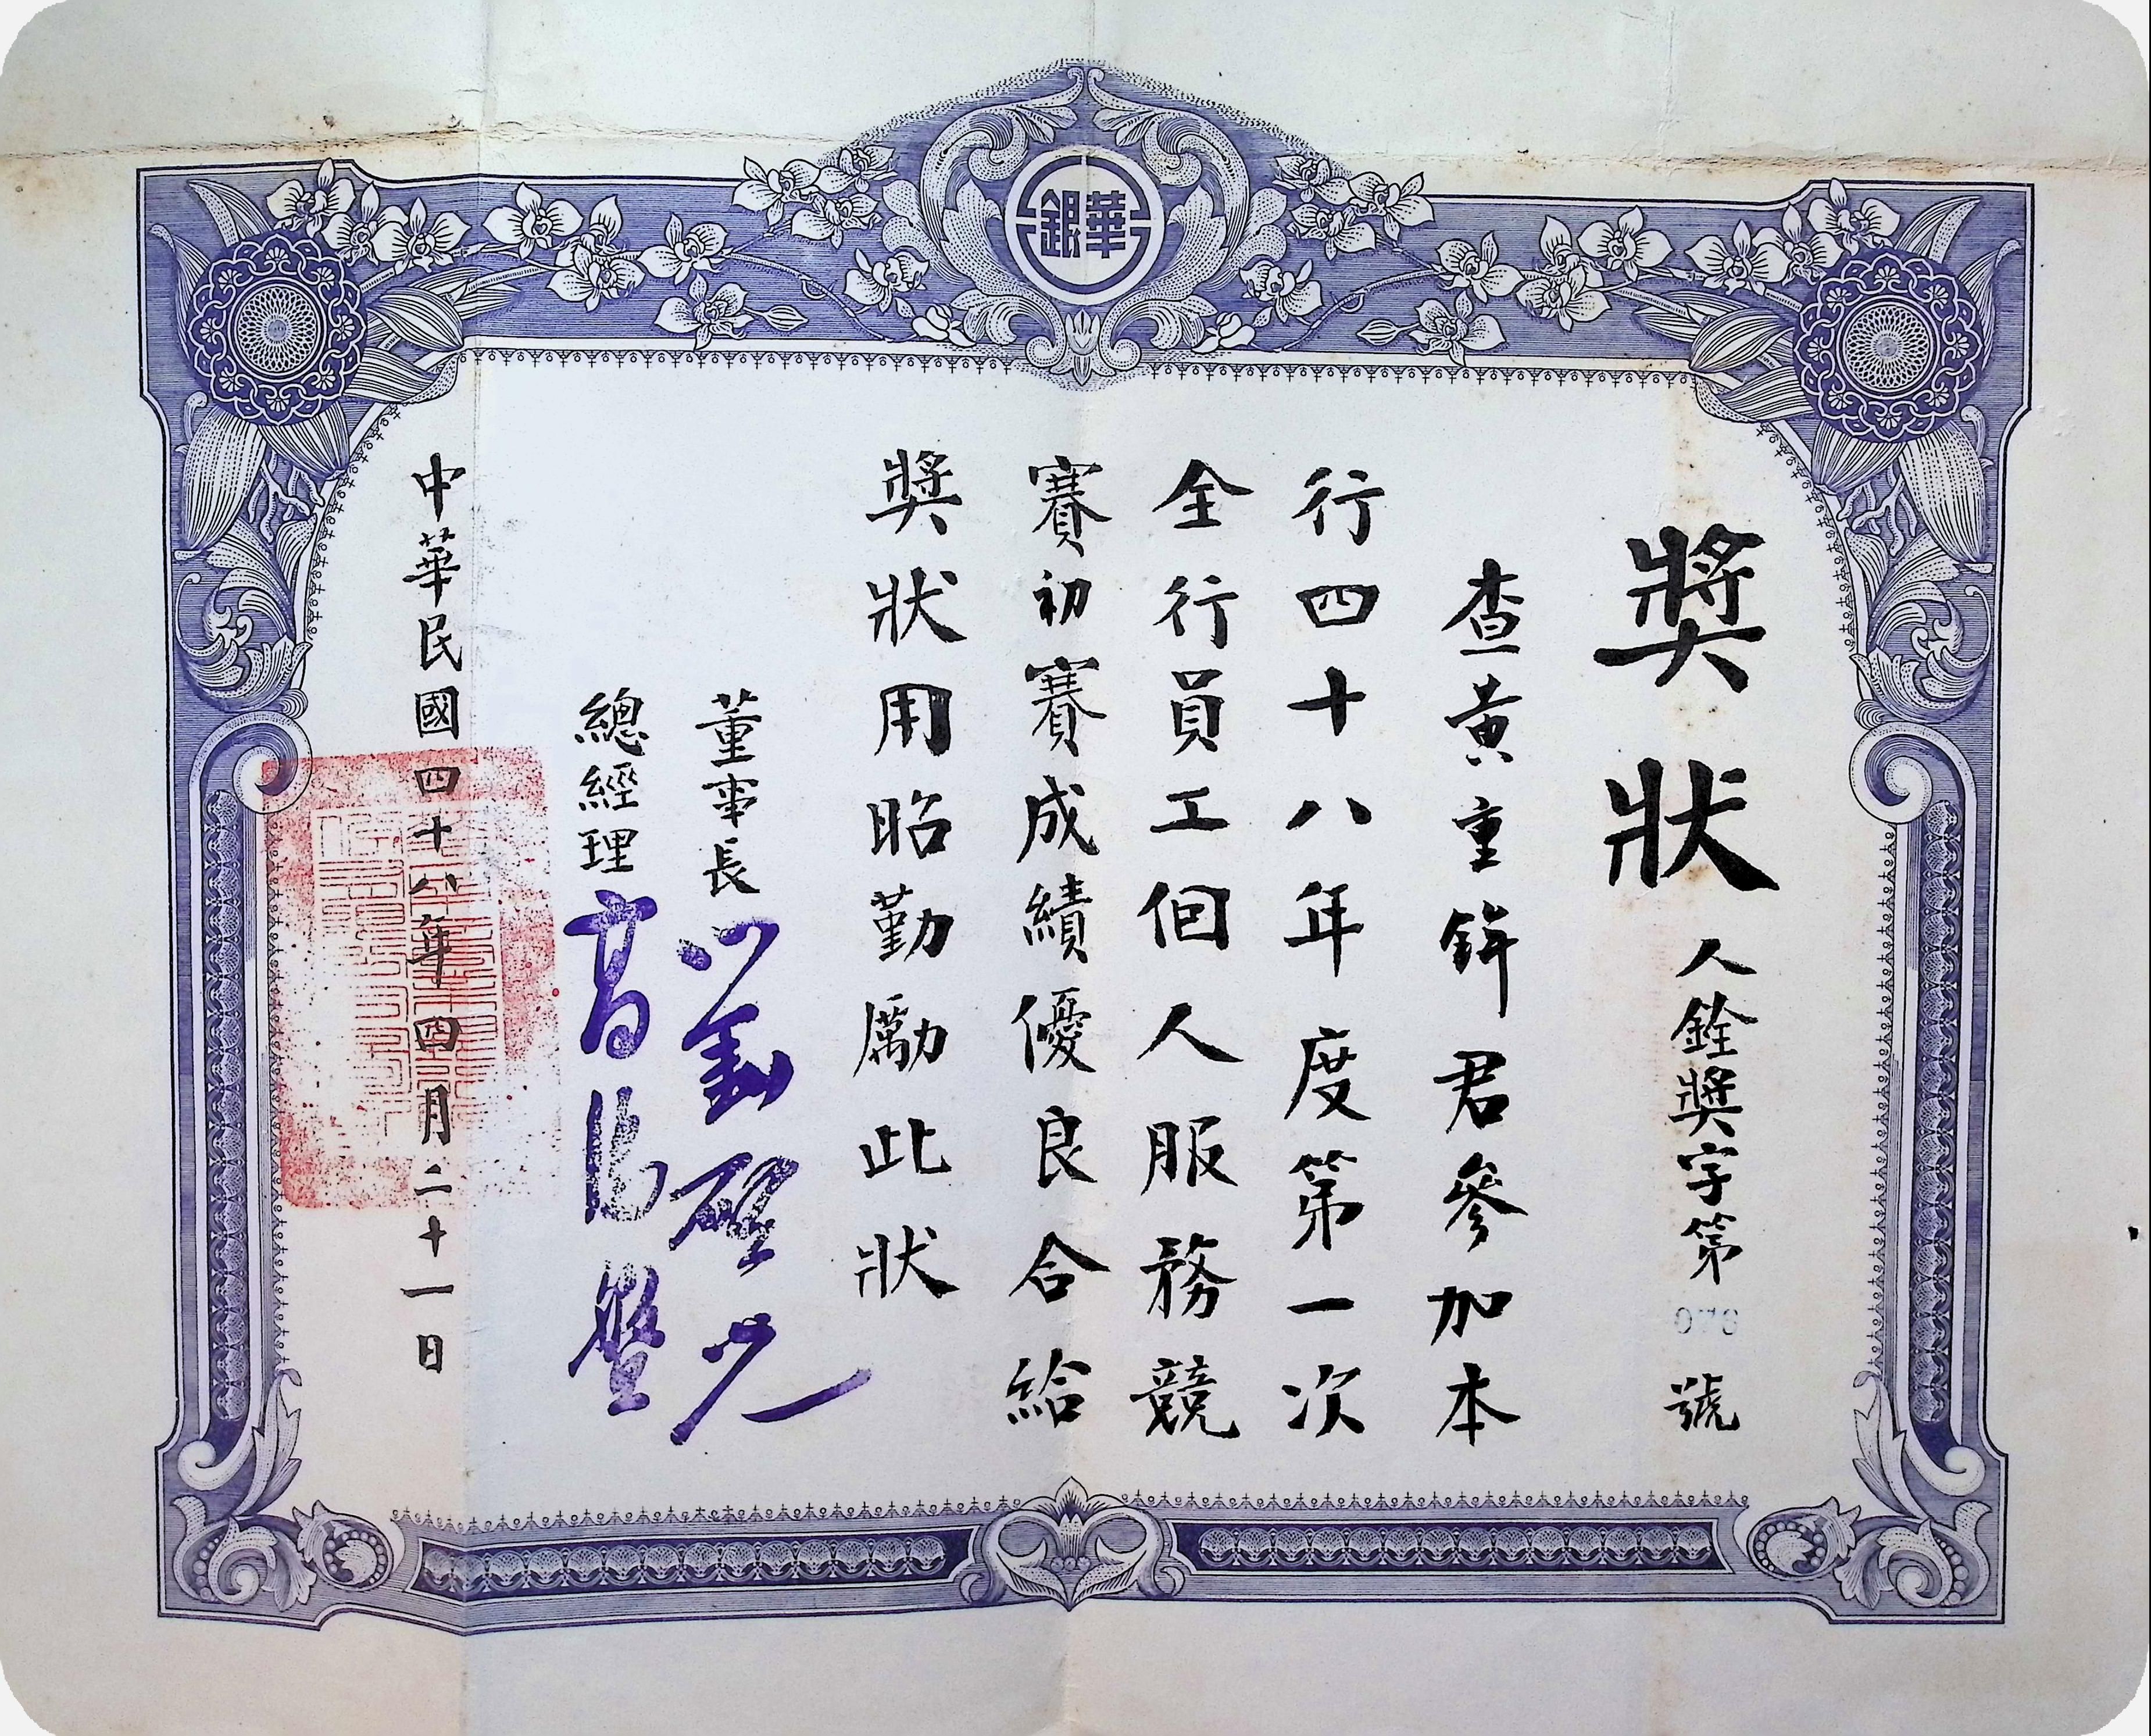 華銀
獎狀
人銓獎字第 號
查黃重 君參加本
行四十八年度第一次
全行員工佪人服務競
賽初賽成績優良合給
獎狀用昭勤勵此狀
董事長 劉啓光
總經理 高湯盤
中華民國四十八年四月二十一日